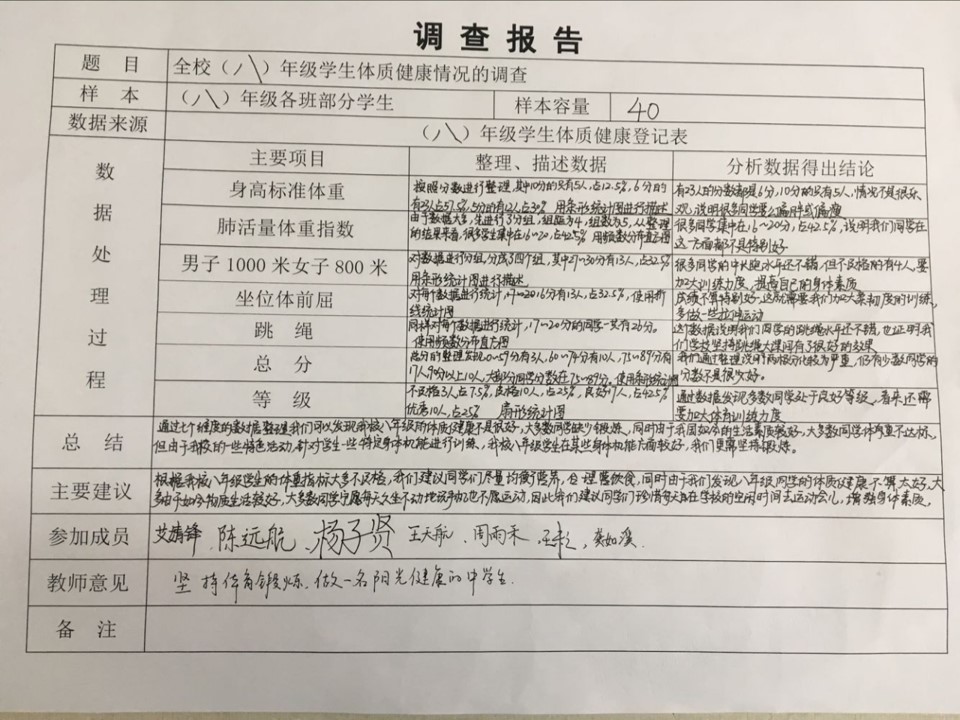 调查报告
题目 全校（八）年级学生体质健康情况的调查
样本 （八）年级各班部分学生 样本容量 40
数据来源 （八）年级学生体质健康登记表
数据处理过程
主要项目 整理、描述数据 分析数据得出结论
身高标准体重
按照分数进行整理,其中10分的只有5人,占12.5%,6分的
有23人占57.5%,5分的有12人占30% 用条形统计图进行描述
有23人的分数都是6分,10分的只有5人,情况不是很乐
观,说明很多同学要么偏胖或偏瘦
肺活量体重指数
由于数据大多,先进行了分组,组距为4,组数为5,从整理
的结果来看,很多学生集中在16~20,占42.5% 用频数分布直方图
很多同学集中在16~20分,占42.5%,说明我们同学在
这一方面都不是特别好
男子1000米女子800米
对数据进行分组,分成了四个组,其中27~30分有13人,占32.5%
用条形统计图进行描述
很多同学的中长跑水平还不错,但不及格的有4人,要
加大训练力度,提高自己的身体素质
坐位体前屈
对每个数据进行统计,17~20 16分有13人,占32.5%,使用折
线统计图
成绩不算特别好,这就需要我们加大柔韧度的训练,
多做一些拉伸运动
跳绳
同样对每个数据进行统计,17~20分的同学一共有26分。
使用频数分布直方图
这个数据说明我们同学的跳绳水平还不错,也证明我
们学校坚持跳绳大课间有了很好的效果
总分
总分的整理发现0~59分有3人,60~74分有10人,75~89分有
17人90分以上10人,大部分同学分数在75~89分。使用条形统计图
我们通过整理说明两极分化较为严重,仍有少数同学的
分数不是很好。
等级
不及格3人,占7.5%,及格10人,占25%,良好17人,占42.5%
优秀10人,占25% 扇形统计图
通过数据发现多数同学处于良好等级,看来还需
要加大体育训练力度
总结
通过七个维度的数对据整理我们可以发现我校八年级的体质健康不是很好,大多数同学缺少锻炼,同时由于我国如今的生活素质较好,大多数同学体重不达标,
但由于我校的一些特色活动,针对学生一些特规身体机能进行训练,我校八年级学生在某些身体机能方面较好,我们更需坚持锻炼。
主要建议
根据我校八年级学生的体重指标大多不及格,我们建议同学们尽量均衡营养,合理营饮食,同时由于我们发现八年级同学的体质健康不算太好,大
多由于如今物质生活较好,大多数同学宁愿每天久坐不动地玩手机也不愿运动,因此我们建议同学们珍惜每天在学校的空闲时间去运动会儿,增强身体素质。
参加成员 艾婧锋 陈远航 杨子贤 王天航、周雨禾、龚如溪.
教师意见 坚持体育锻炼.做一名阳光健康的中学生.
备注